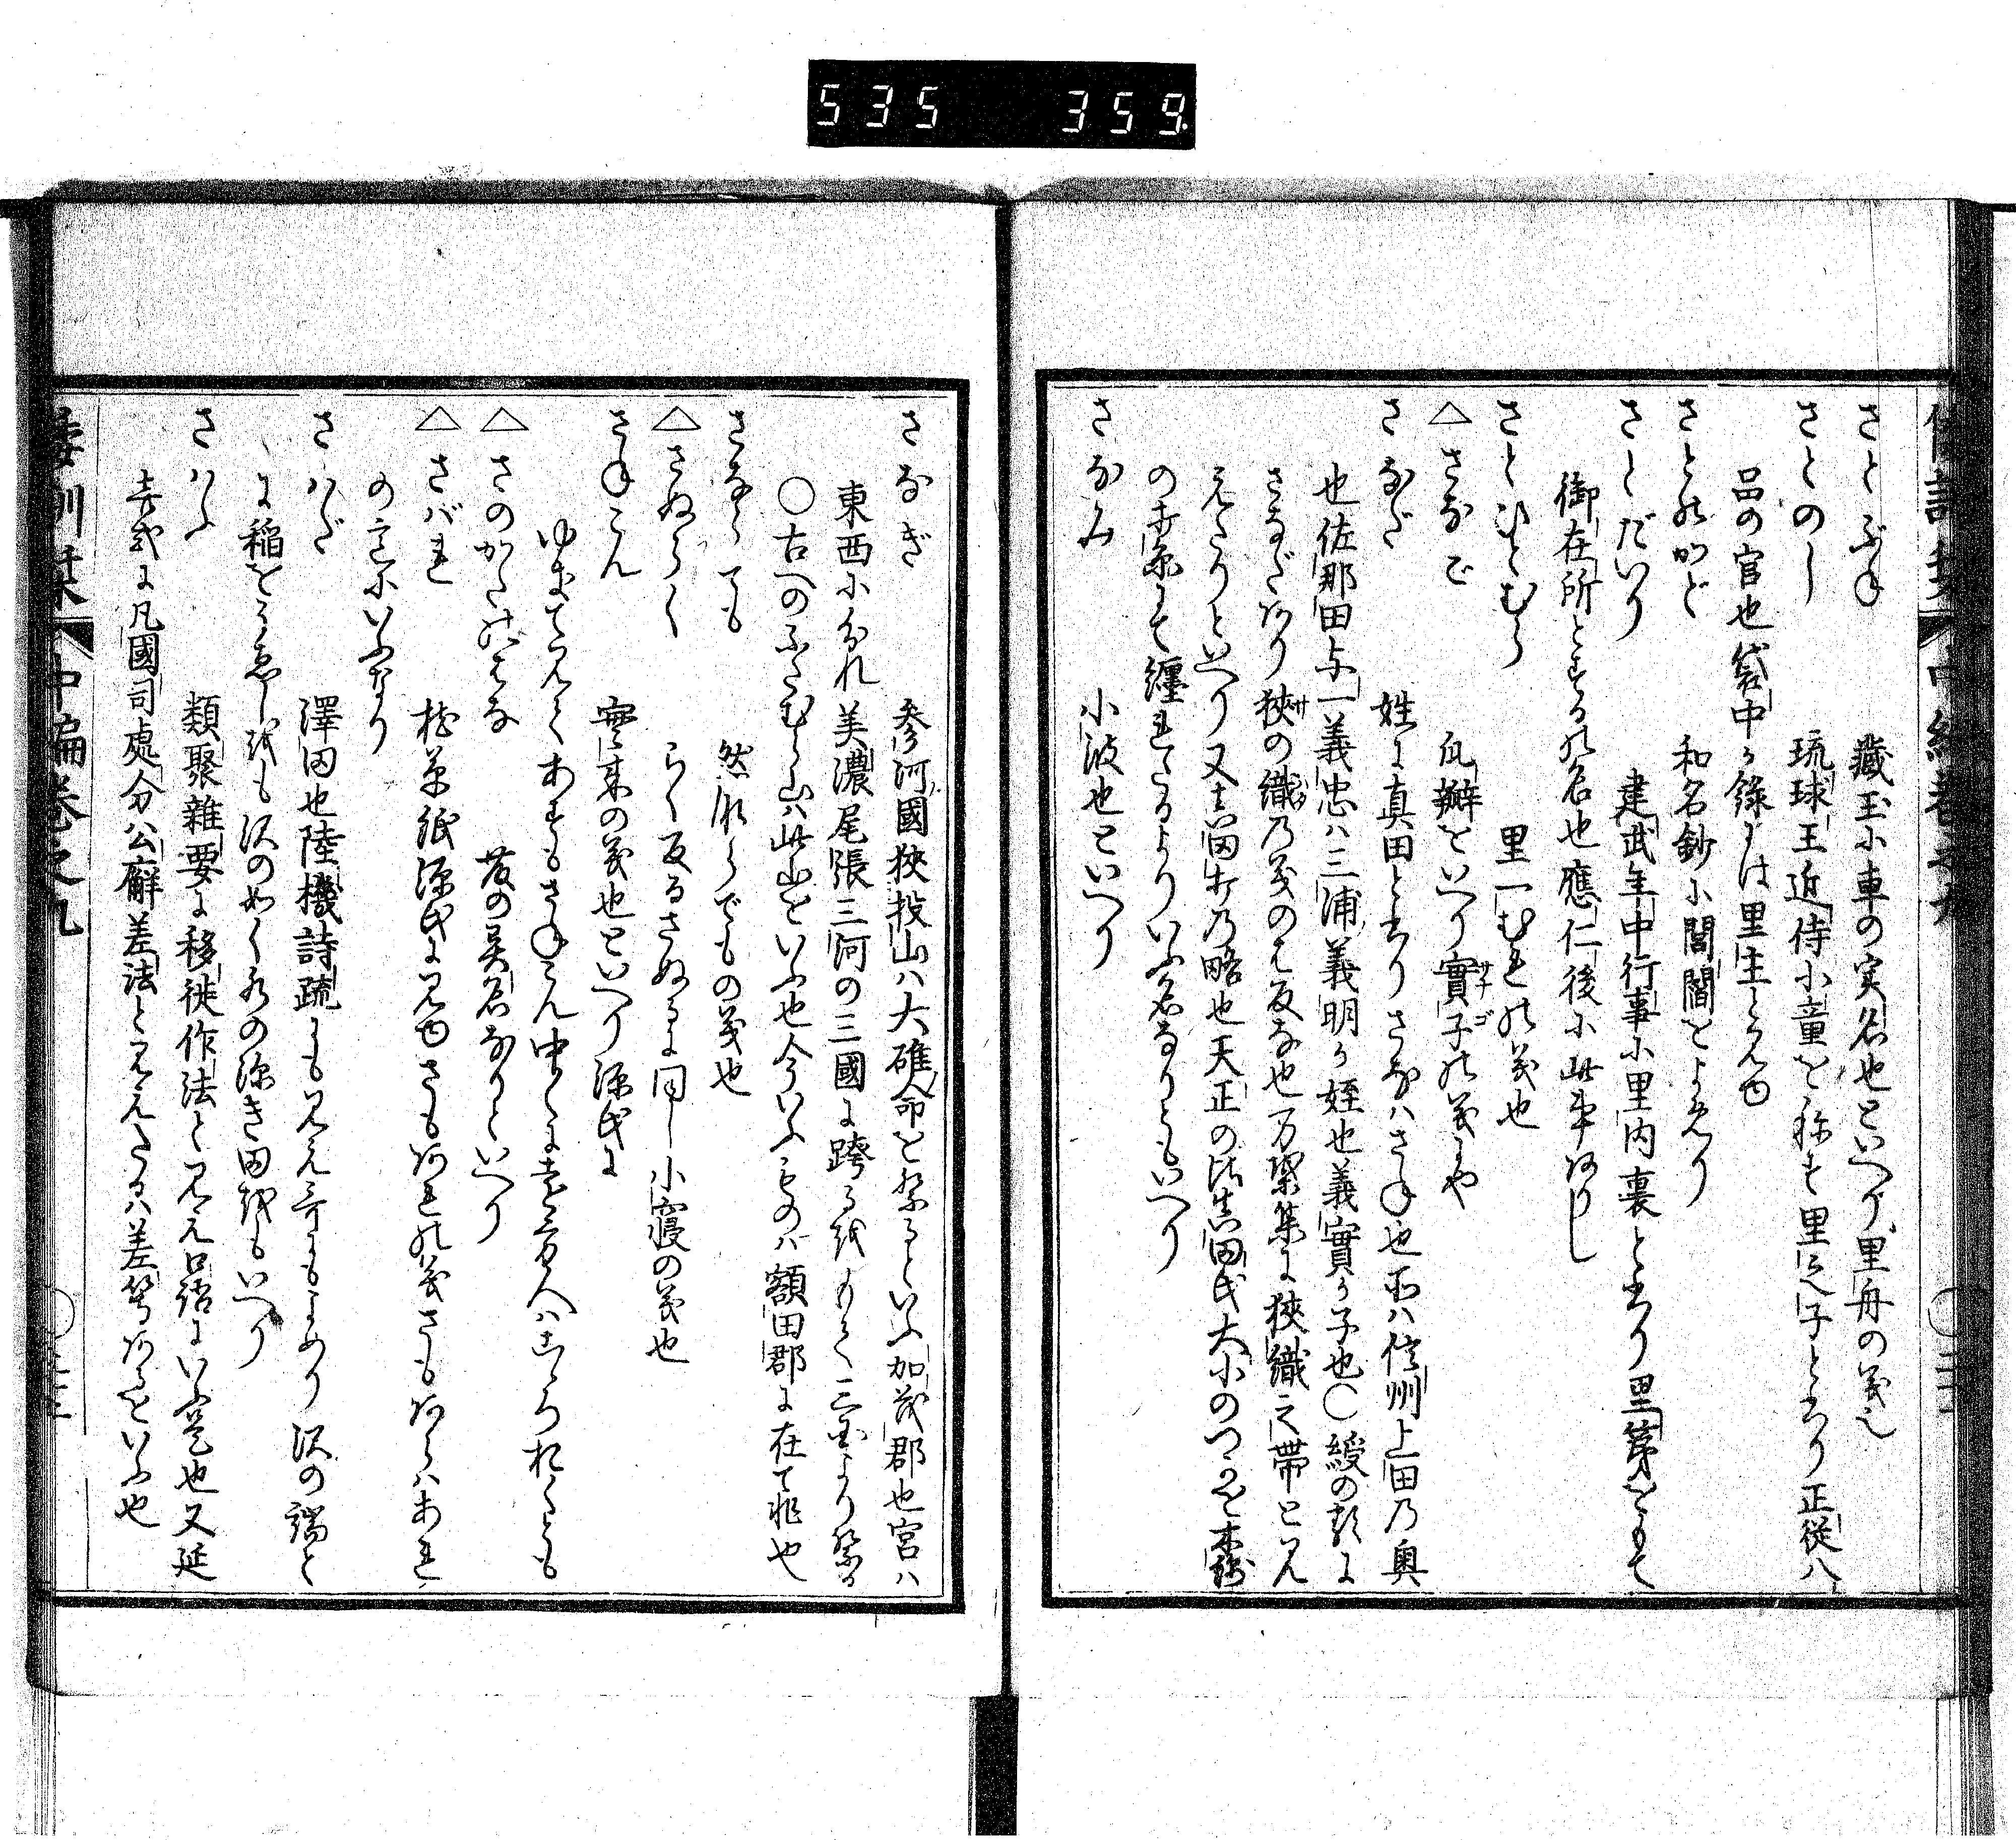 535 359
さとぶね 藏玉に車の実名也といへり里舟の義也
さとのし 琉球王近侍小童を称す里之子とかけり正従八
品の官也袋中か錄には里主と見ゆ
さとのかど 和名鈔に閭閻をよめり
さとだいり 建武年中行事に里内裏とかけり里第をもて
御在所とするの名也應仁後に此事なりし
さとひとむら 里一むれの義也
△さなご 瓜瓣をいへり實子の義にや
さなだ 姓に真田とかけりさなハさね也所ハ信州上田乃奥
也佐那田与一義忠ハ三浦義明か姪也義實か子也○綬の類に
さなだあり狹の織乃義のを反な也万葉集に狹織之帶と見
えたりといへり又真田打乃略也天正の比真田氏大小のつかを木綿
の打糸にて纏れたるよりいふ名なりともいへり
さなみ 小波也といへり
さなぎ 参河國狹投山ハ大碓命を祭るといふ加茂郡也宮ハ
東西に分れ美濃尾張三河の三國に跨る故もて三州より祭る
○古へのふたむら山ハ此山をいふ也今いふものハ額田郡に在て非也
さなくても 然なくでもの義也
△さぬらく らく反るさぬるに同し小寢の義也
さねこん 寐來の義也といへり源氏に
ゆきて見てあすもさねこん中々にをち方人ハこゝろおくとも
△さのかたのはな 藤の異名なりといへり
△さバれ 枕草紙源氏に見ゆさもあれの義さもあらハあれ
の意にいふなり
さハだ 澤田也陸機詩疏にも見え哥にもよめり沢の端と
に稲をうゑし故も沢の如く水の深き田故もいへり
さハふ 類聚雜要に移徙作法と見え口語にいふ是也又延
喜式に凡國司處分公廨差法と見えたるハ差等あるをいふ也
倭訓栞 中編卷之九